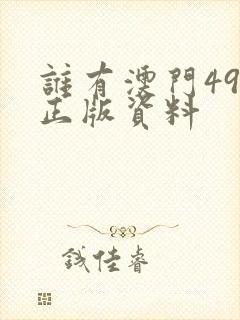 誰有澳門49
正版資料
錢佳睿